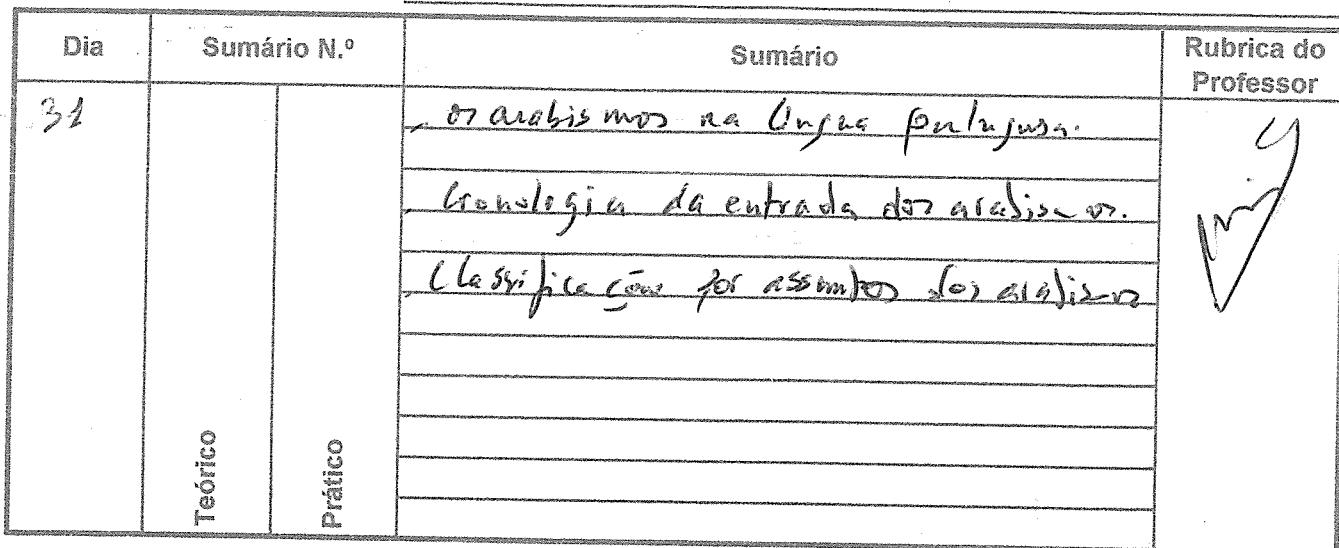 Dia Sumário N.º Sumário Rubrica do Professor
31
Teórico Prático
. os arabismos na língua portuguesa.
. Cronologia da entrada dos arabismos.
. Classificação por assuntos dos arabismos